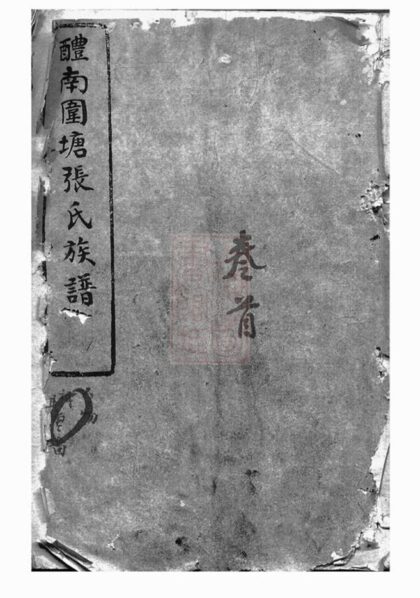 醴南圍塘張氏族譜
卷首